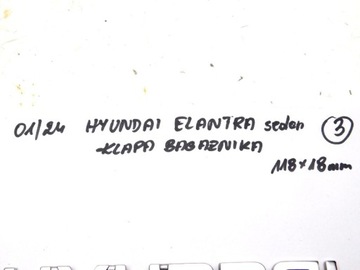 01/24 HYUNDAI ELANTRA sedan 3
KLAPA BAGAZNIKA
118×18mm